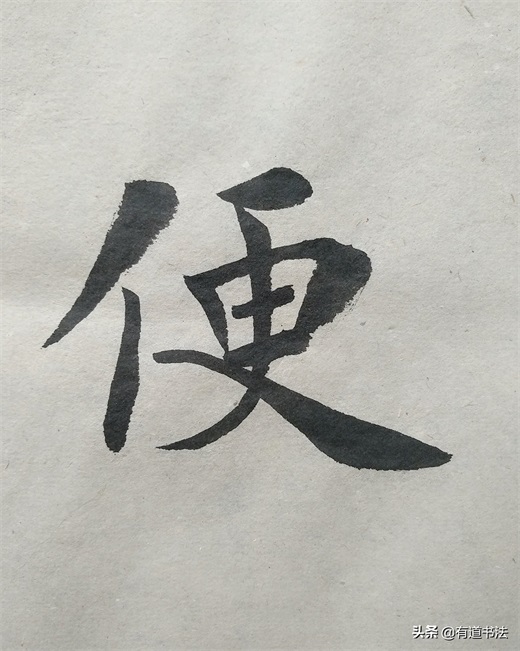 便
头条 @有道书法